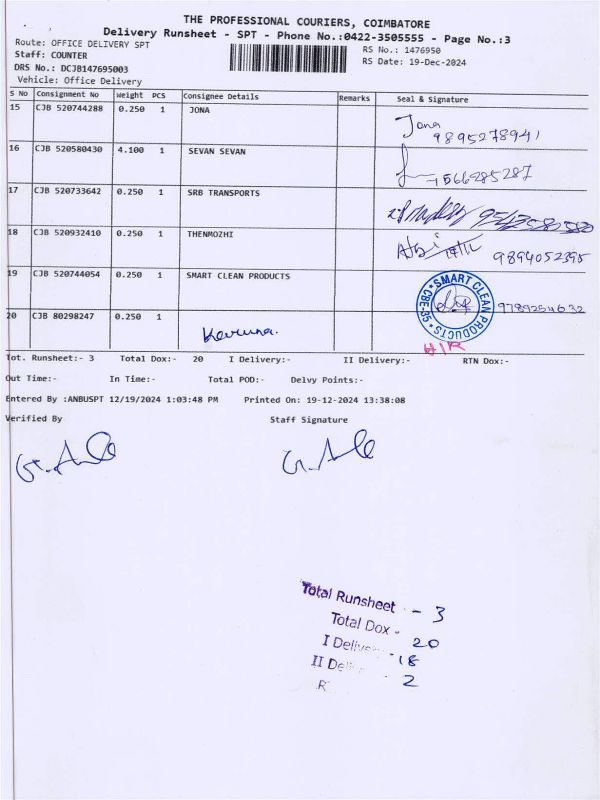 THE PROFESSIONAL COURIERS, COIMBATORE
Delivery Runsheet - SPT - Phone No.:0422-3505555 - Page No.:3
Route: OFFICE DELIVERY SPT
RS No.: 1476950
Staff: COUNTER
RS Date: 19-Dec-2024
DRS No.: DCJB147695003
Vehicle: Office Delivery
S No Consignment No Weight PCS Consignee Details Remarks Seal & Signature
15 CJB 520744288 0.250 1 JONA Jona
9895278941
16 CJB 520580430 4.100 1 SEVAN SEVAN
7566285287
17 CJB 520733642 0.250 1 SRB TRANSPORTS
18 CJB 520932410 0.250 1 THENMOZHI
9894052395
19 CJB 520744054 0.250 1 SMART CLEAN PRODUCTS SMART CLEAN PRODUCTS CBE-35
9789254632
20 CJB 80298247 0.250 1
H/R
Tot. Runsheet:- 3 Total Dox:- 20 I Delivery:- II Delivery:- RTN Dox:-
Out Time:- In Time:- Total POD:- Delvy Points:-
Entered By :ANBUSPT 12/19/2024 1:03:48 PM Printed On: 19-12-2024 13:38:08
Verified By Staff Signature
Total Runsheet - 3
Total Dox - 20
I Delive - 18
II Del 2
R